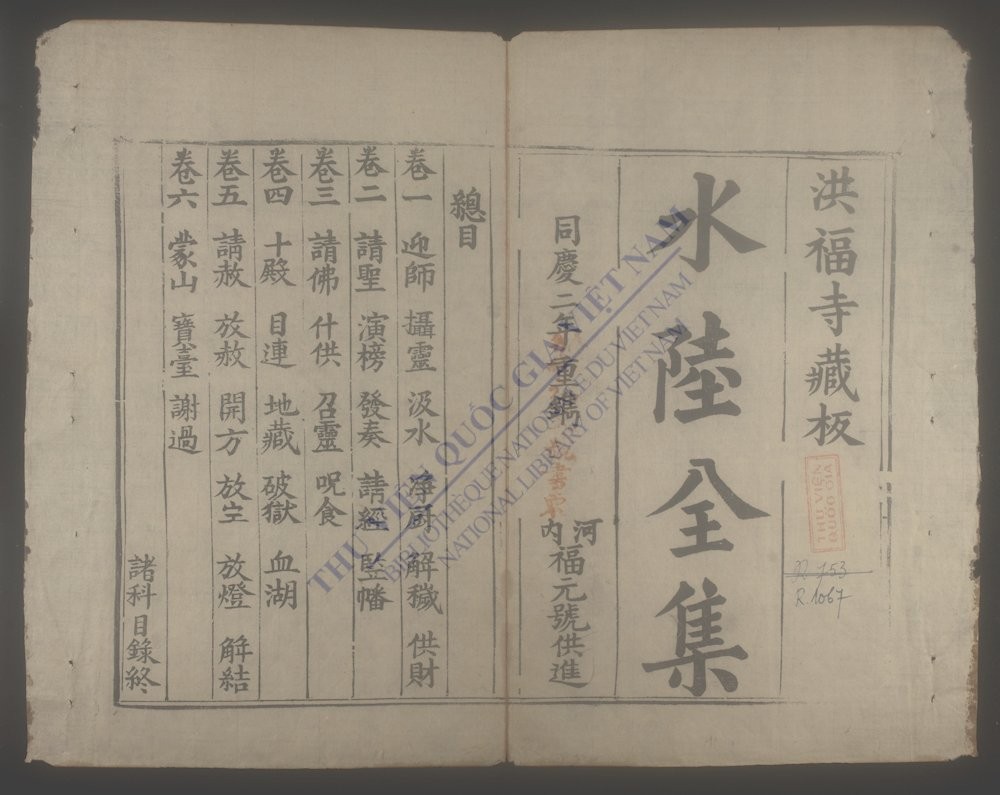 洪福寺藏板
水陸全集
同慶二年重鐫
河内福元號供進
總目
卷一 迎師 攝靈 汲水 淨厨 解穢 供財
卷二 請聖 演榜 發奏 請經 監幡
卷三 請佛 什供 召靈 呪食
卷四 十殿 目連 地藏 破獄 血湖
卷五 請赦 放赦 開方 放生 放燈 解結
卷六 蒙山 寶臺 謝過
諸科目錄終
THƯ VIỆN QUỐC GIA VIỆT NAM
BIBLIOTHÈQUE NATIONALE DU VIETNAM
NATIONAL LIBRARY OF VIETNAM
THƯ VIỆN
QUỐC GIA
R.1067